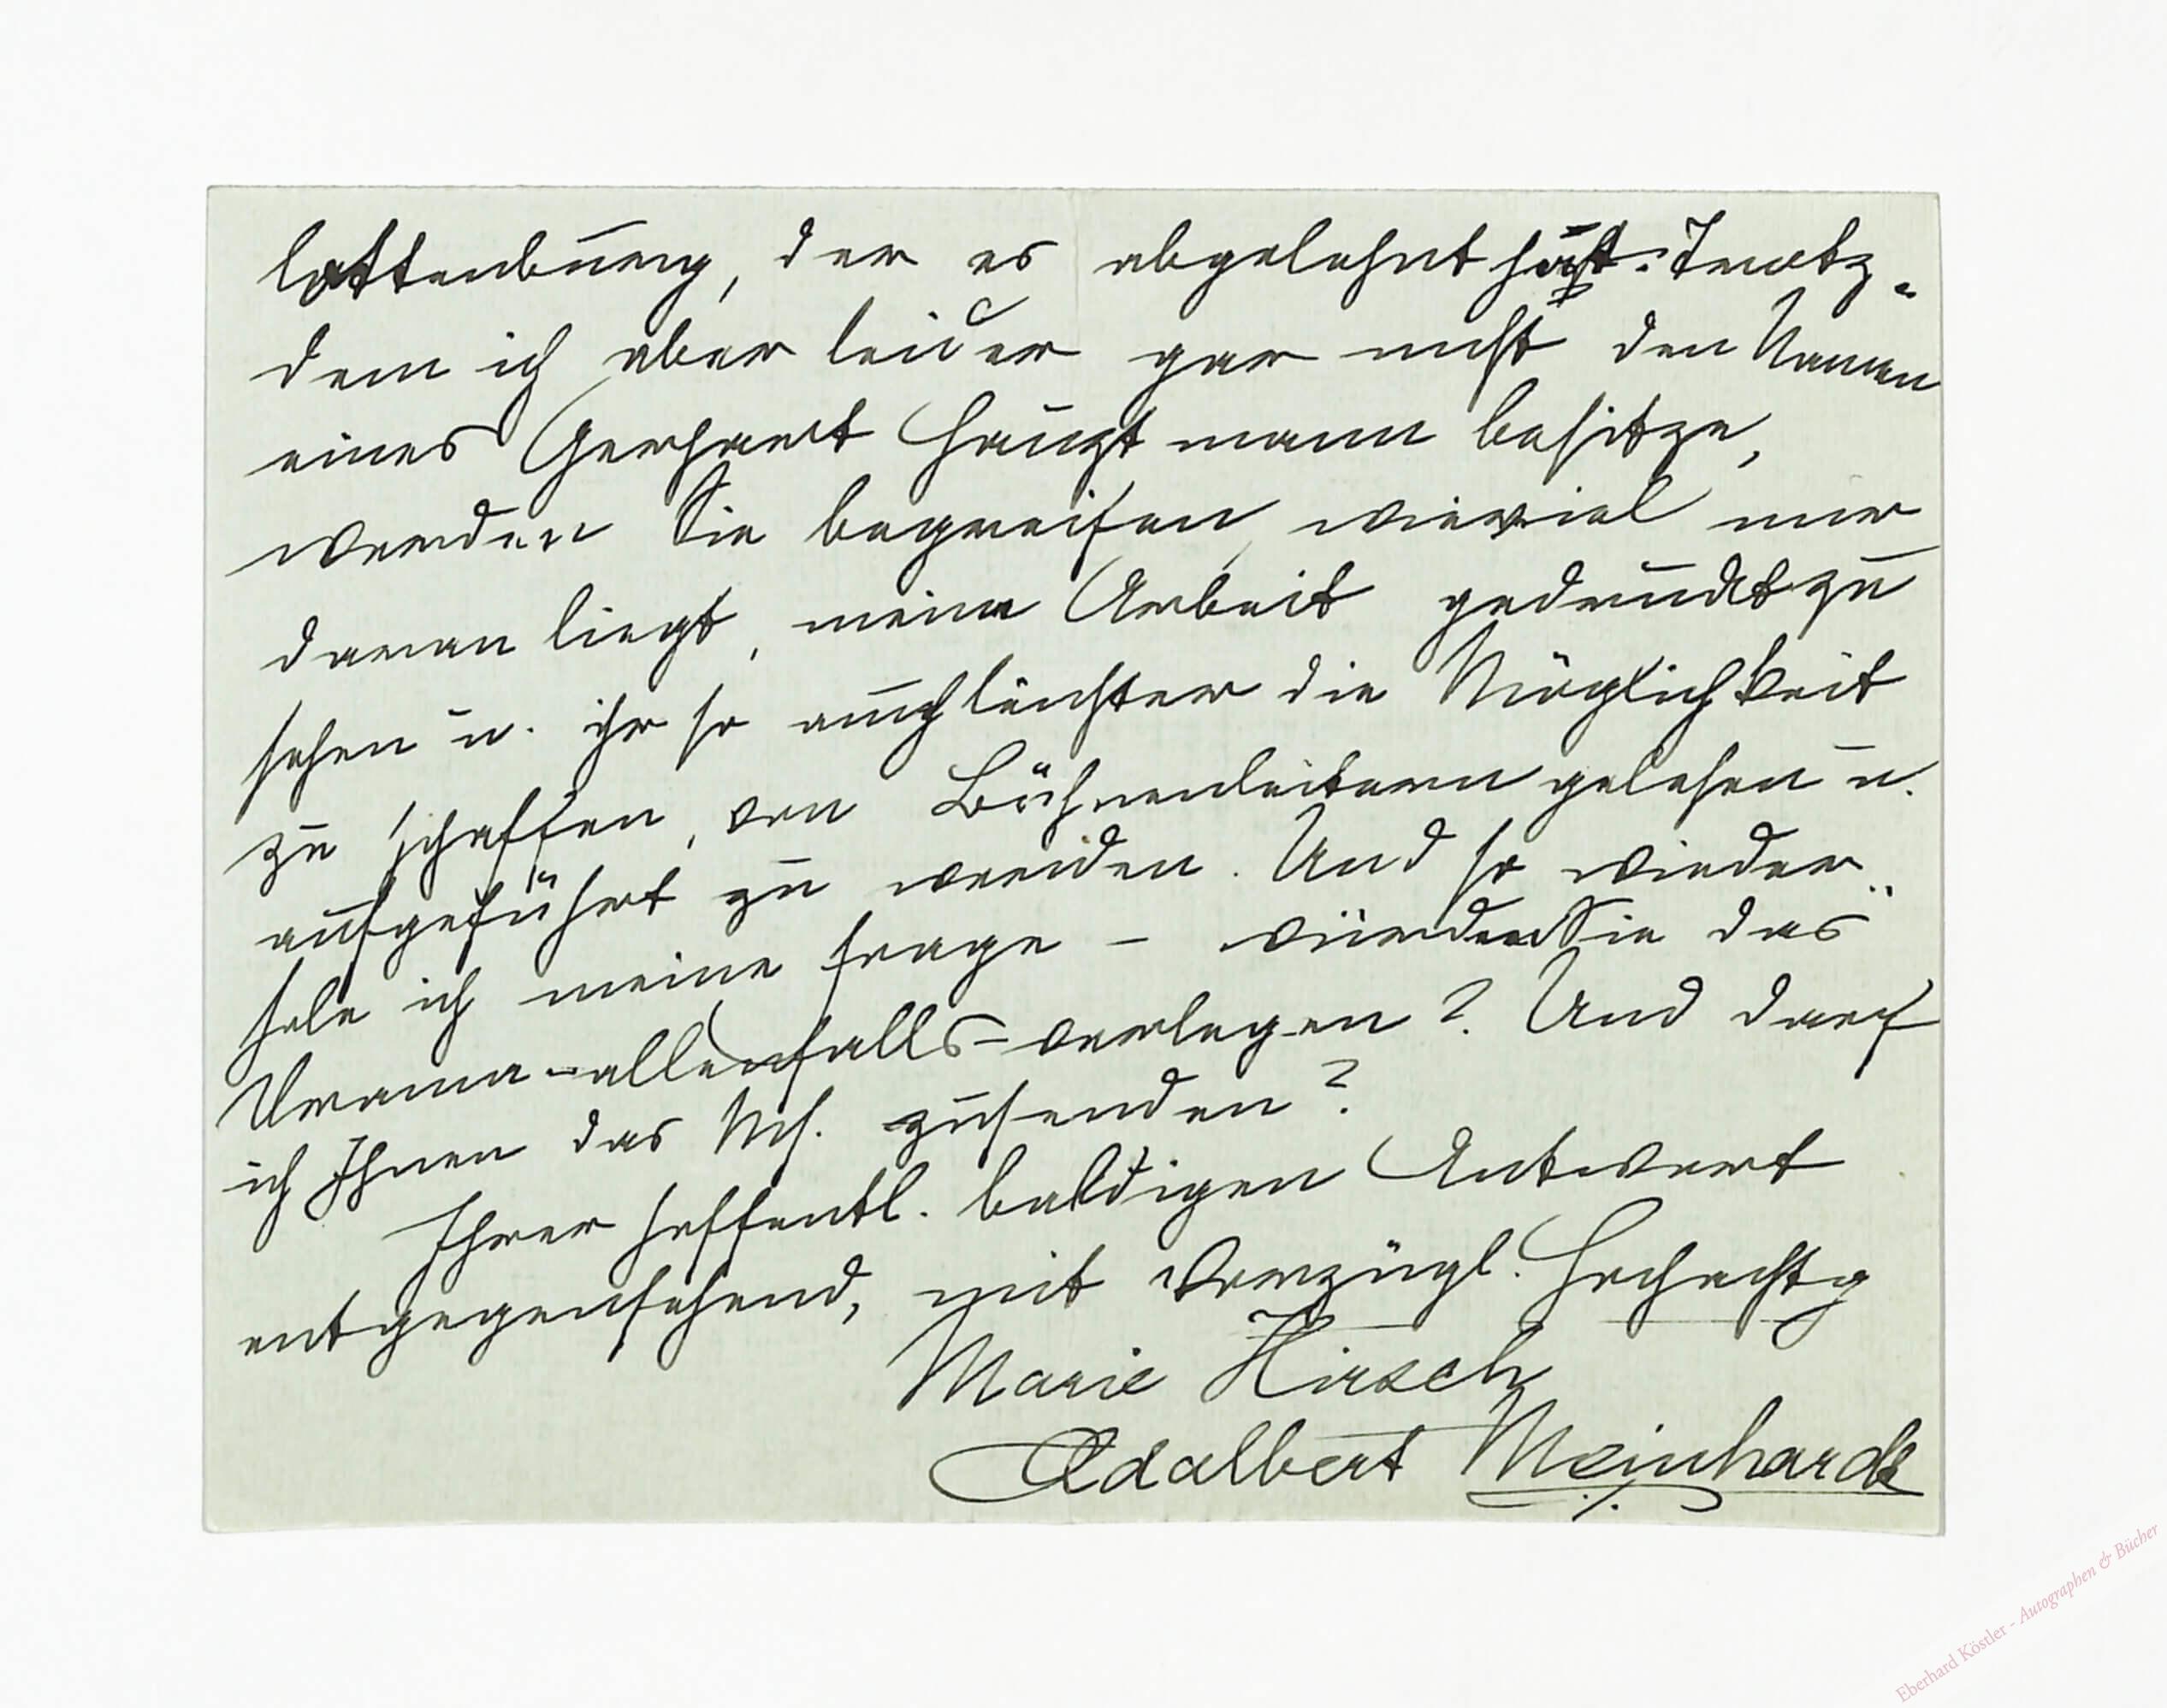 lottenburg, der es abgelehnt hat. Trotz-
dem ich aber leider gar nicht den Namen
eines Gerhart Hauptmann besitze,
werden Sie begreifen, wieviel mir
daran liegt, meine Arbeit gedruckt zu
sehen u. ihr so leichter die Möglichkeit
zu schaffen, von Bühnenleitern gelesen u.
aufgeführt zu werden. Und so wieder-
hole ich meine Frage – würden Sie das
Drama – allenfalls – verlegen? Und darf
ich Ihnen das Ms. zusenden?
Ihrer hoffentl. baldigen Antwort
entgegensehend, mit vorzügl. Hochachtg
Marie Hirsch
Adalbert Meinhardt
Eberhard Köstler - Autographen & Bücher